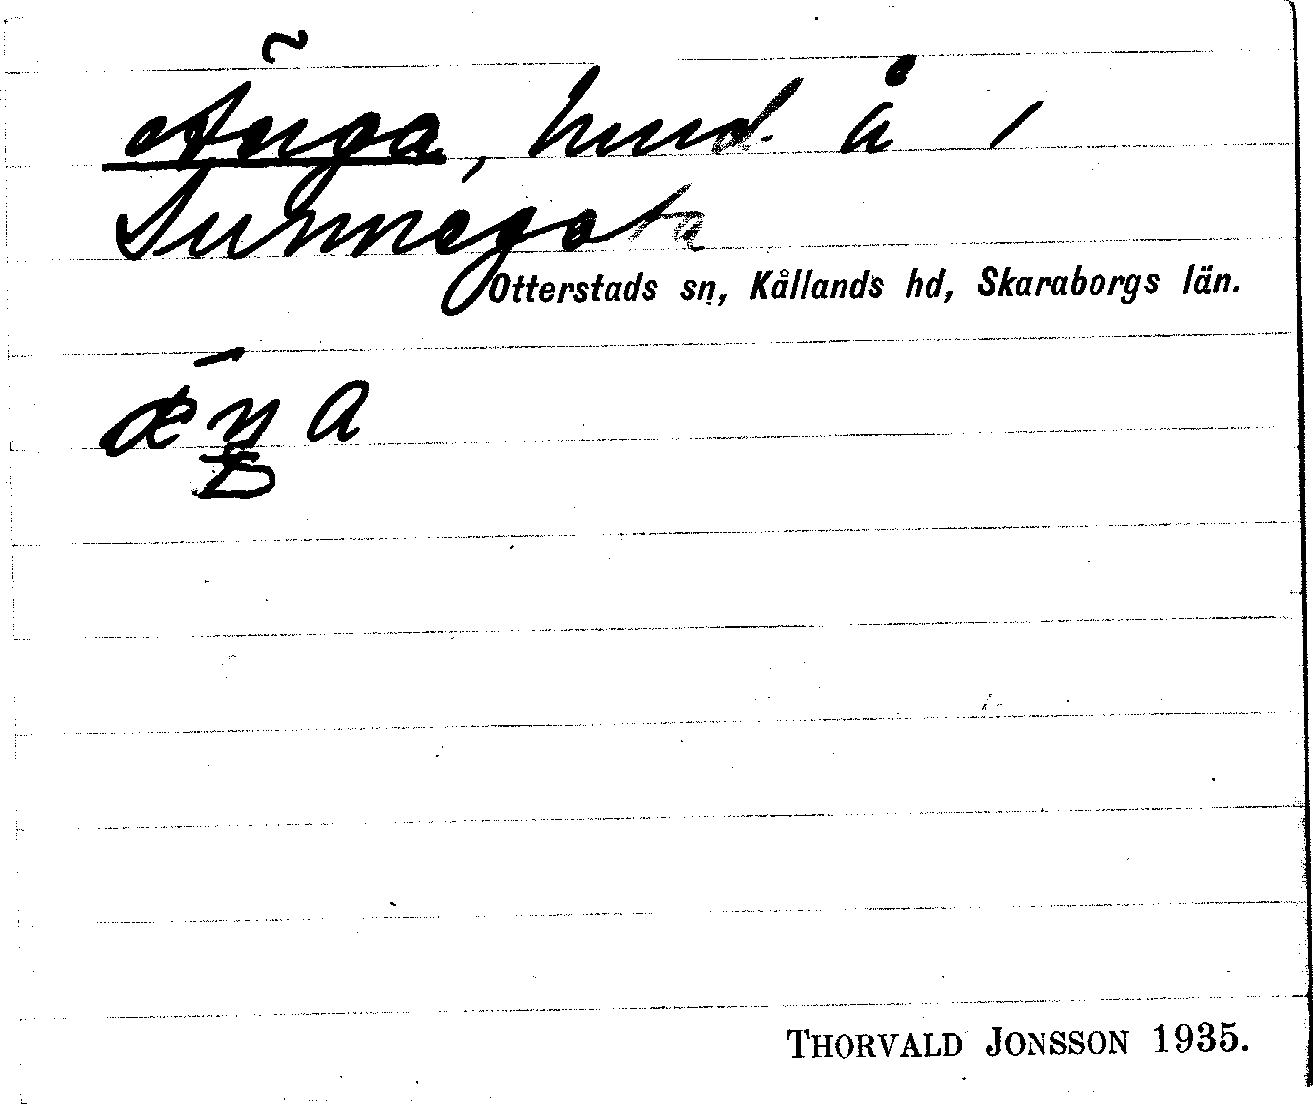 Änga, hmd. å 1
Sunnegata
Otterstads sn, Kållands hd, Skaraborgs län.
THORVALD JONSSON 1935.